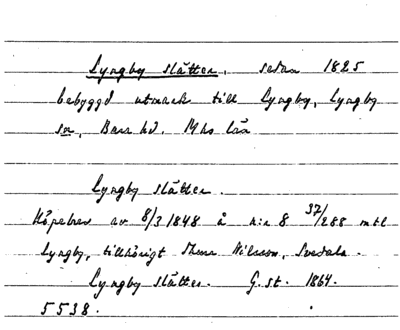 Lyngby slätter, sedan 1825
bebyggd utmark till Lyngby, Lyngby
sn, Bara hd. Mhs län
Lyngby slätter.
Köpebrev av 8/3 1848 å n:r 8 37/288 mtl
Lyngby, tillhörigt Nilsson, Svedala.
Lyngby slätter. G.st. 1864.
5538.